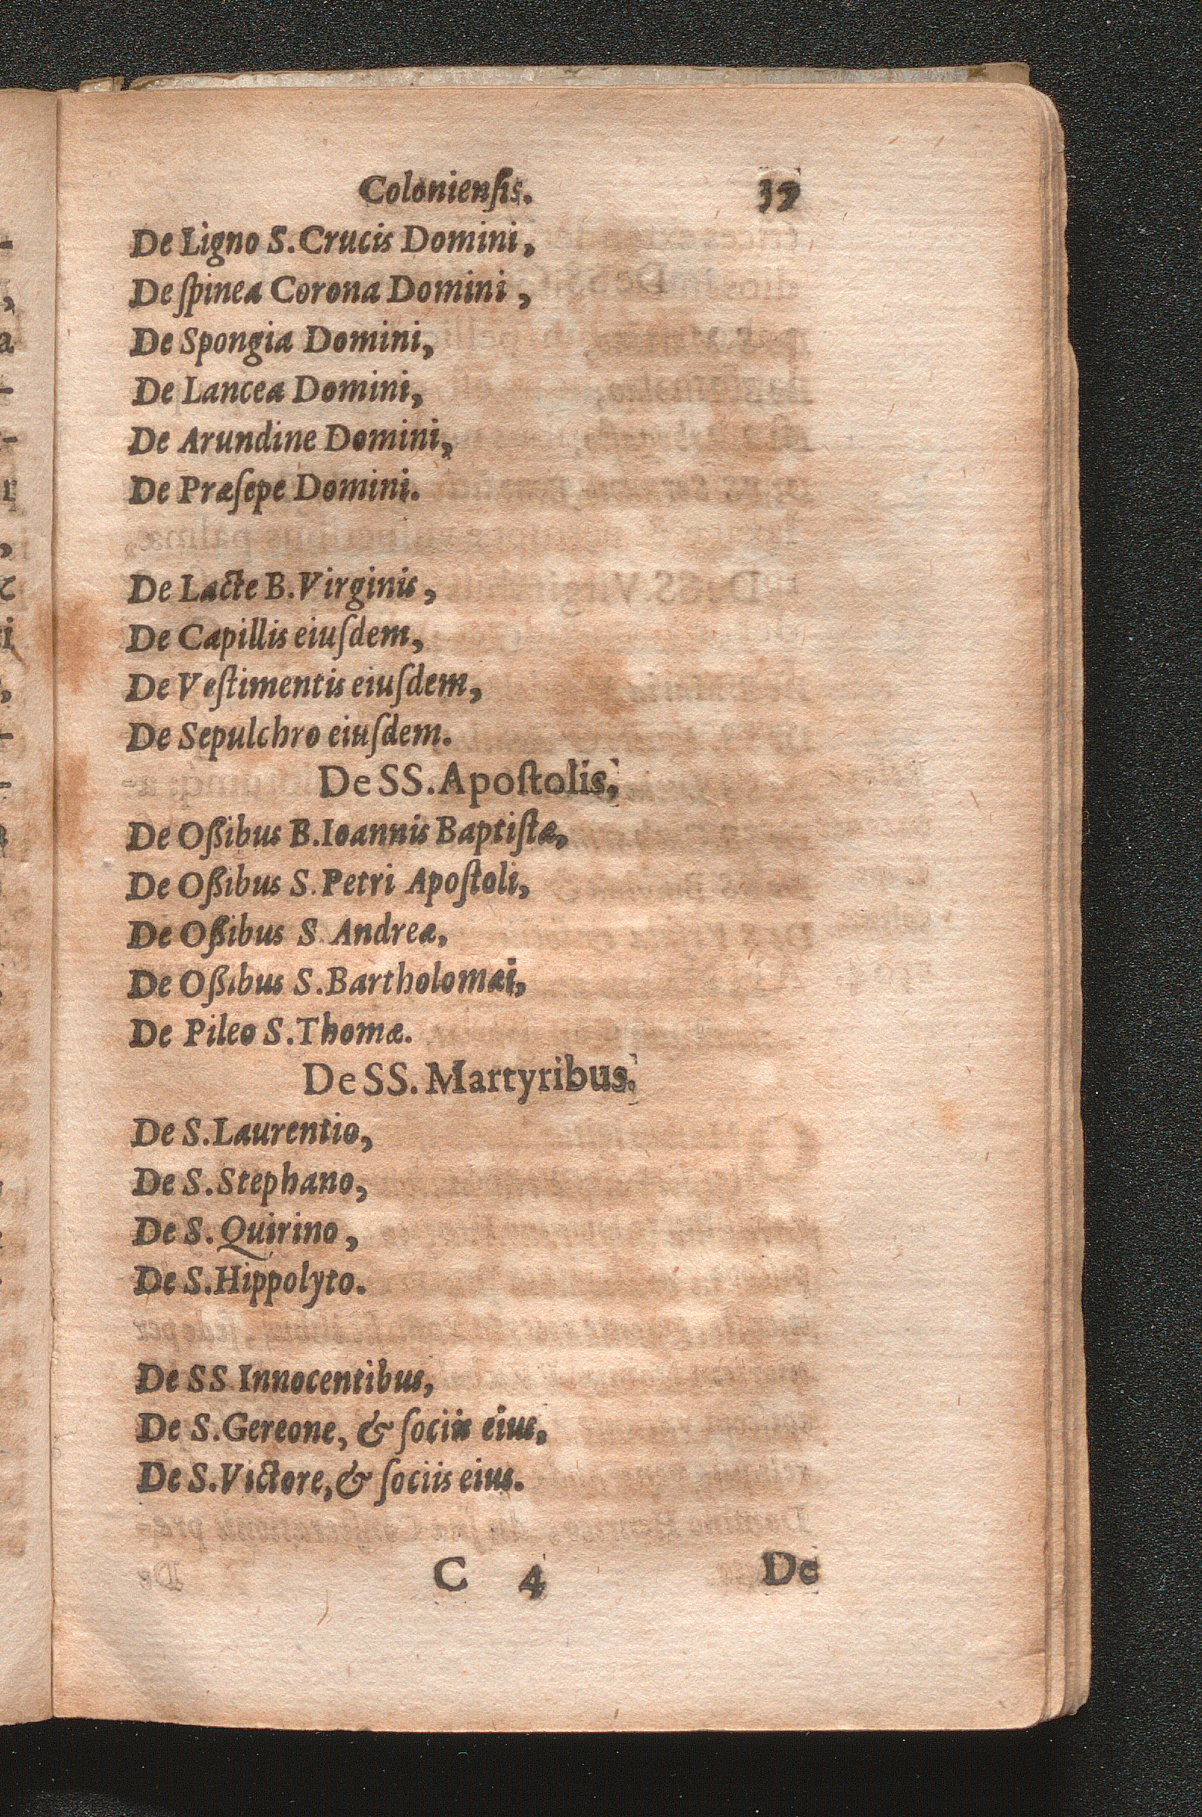 Colonienſis. 39
De Ligno S. Crucis Domini,
De ſpinea Corona Domini,
De Spongia Domini,
De Lancea Domini,
De Arundine Domini,
De Præſepe Domini.
De Lacte B. Virginis,
De Capillis eiuſdem,
De Veſtimentis eiuſdem,
De Sepulchro eiuſdem.
De SS. Apoſtolis,
De Oßibus B. Ioannis Baptiſtæ,
De Oßibus S. Petri Apoſtoli,
De Oßibus S. Andreæ,
De Oßibus S. Bartholomæi,
De Pileo S. Thomæ.
De SS. Martyribus.
De S. Laurentio,
De S. Stephano,
De S. Quirino,
De S. Hippolyto.
De SS Innocentibus,
De S. Gereone, & ſociis eius,
De S. Victore, & ſociis eius.
C 4 De